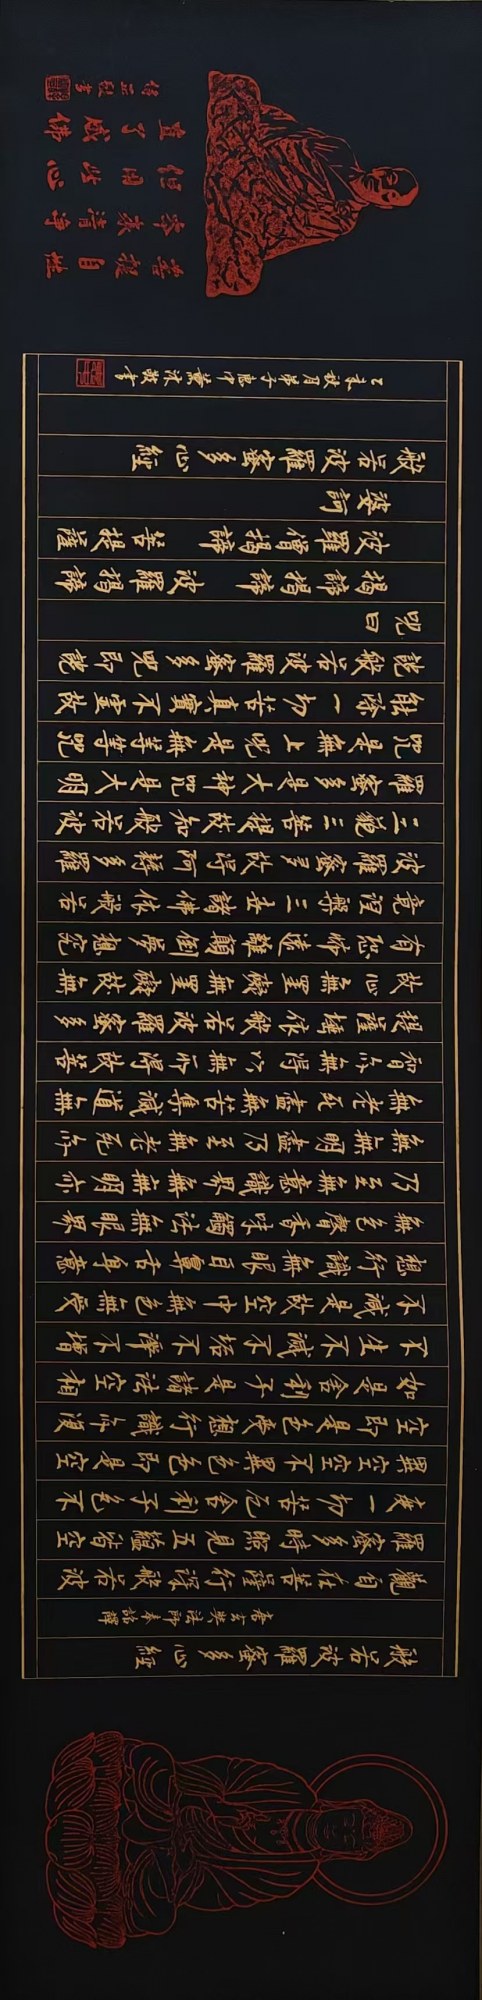 般若波羅蜜多心經
唐玄奘法師奉詔譯
觀自在菩薩行深般若波
羅蜜多時照見五蘊皆空
度一切苦厄舍利子色不
異空空不異色色即是空
空即是色受想行識亦復
如是舍利子是諸法空相
不生不滅不垢不淨不增
不減是故空中無色無受
想行識無眼耳鼻舌身意
無色聲香味觸法無眼界
乃至無意識界無無明亦
無無明盡乃至無老死亦
無老死盡無苦集滅道無
智亦無得以無所得故菩
提薩埵依般若波羅蜜多
故心無罣礙無罣礙故無
有恐怖遠離顛倒夢想究
竟涅槃三世諸佛依般若
波羅蜜多故得阿耨多羅
三藐三菩提故知般若波
羅蜜多是大神咒是大明
咒是無上咒是無等等咒
能除一切苦真實不虛故
說般若波羅蜜多咒即說
咒曰
揭諦揭諦 波羅揭諦
波羅僧揭諦 菩提薩
婆訶
般若波羅蜜多心經
乙未秋月弟子中薰沐敬書
菩提自性
本來清淨
但用此心
直了成佛